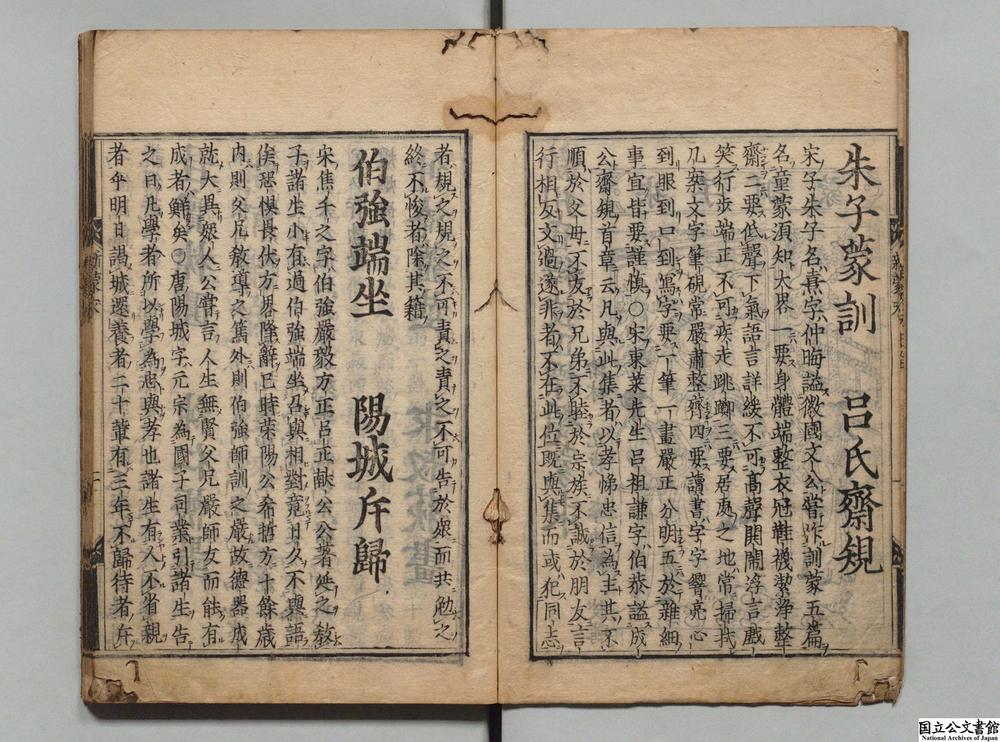 朱子蒙訓 呂氏齋規
宋子朱子名熹字仲晦謚徽國文公嘗作訓蒙五篇
名童蒙須知大界一要身體端整衣冠鞋襪潔淨整
齋二要低聲下氣語言詳緩不可高聲鬧閙浮言戲
笑行步端正不可疾走跳躑三要居處之地常掃拭
几案文字筆硯常嚴肅整齊四要讀書字字響亮心
到眼到口到寫字要一筆一畫嚴正分明五於雜細
事宜皆要謹慎○宋東萊先生呂祖謙字伯恭謚成
公齋規首章云凡與此集者以孝悌忠信為主其不
順於父母不友於兄弟不睦於宗族不誠於朋友言
行相反文過遂非者不在此位既與集而或犯同志
者規之規之不可責之責之不可告於眾而共勉之
終不悛者除其籍
伯強端坐 陽城斥歸
宋焦千之字伯強嚴毅方正呂正獻公公著延之教
子諸生小有過伯強端坐召與相對竟日久不與語
俟恐懼畏伏方畧降辭已時荣陽公希哲方十餘歲
内則父兄教導之篤外則伯強師訓之嚴故德器成
就大異眾人公嘗言人生無賢父兄嚴師友而能有
成者鮮矣○唐陽城字元宗為國子司業引諸生告
之曰凡學者所以學為忠與孝也諸生有久不省親
者乎明日謁城還養者二十輩有三年不歸侍者斥
国立公文書館
National Archives of Japan